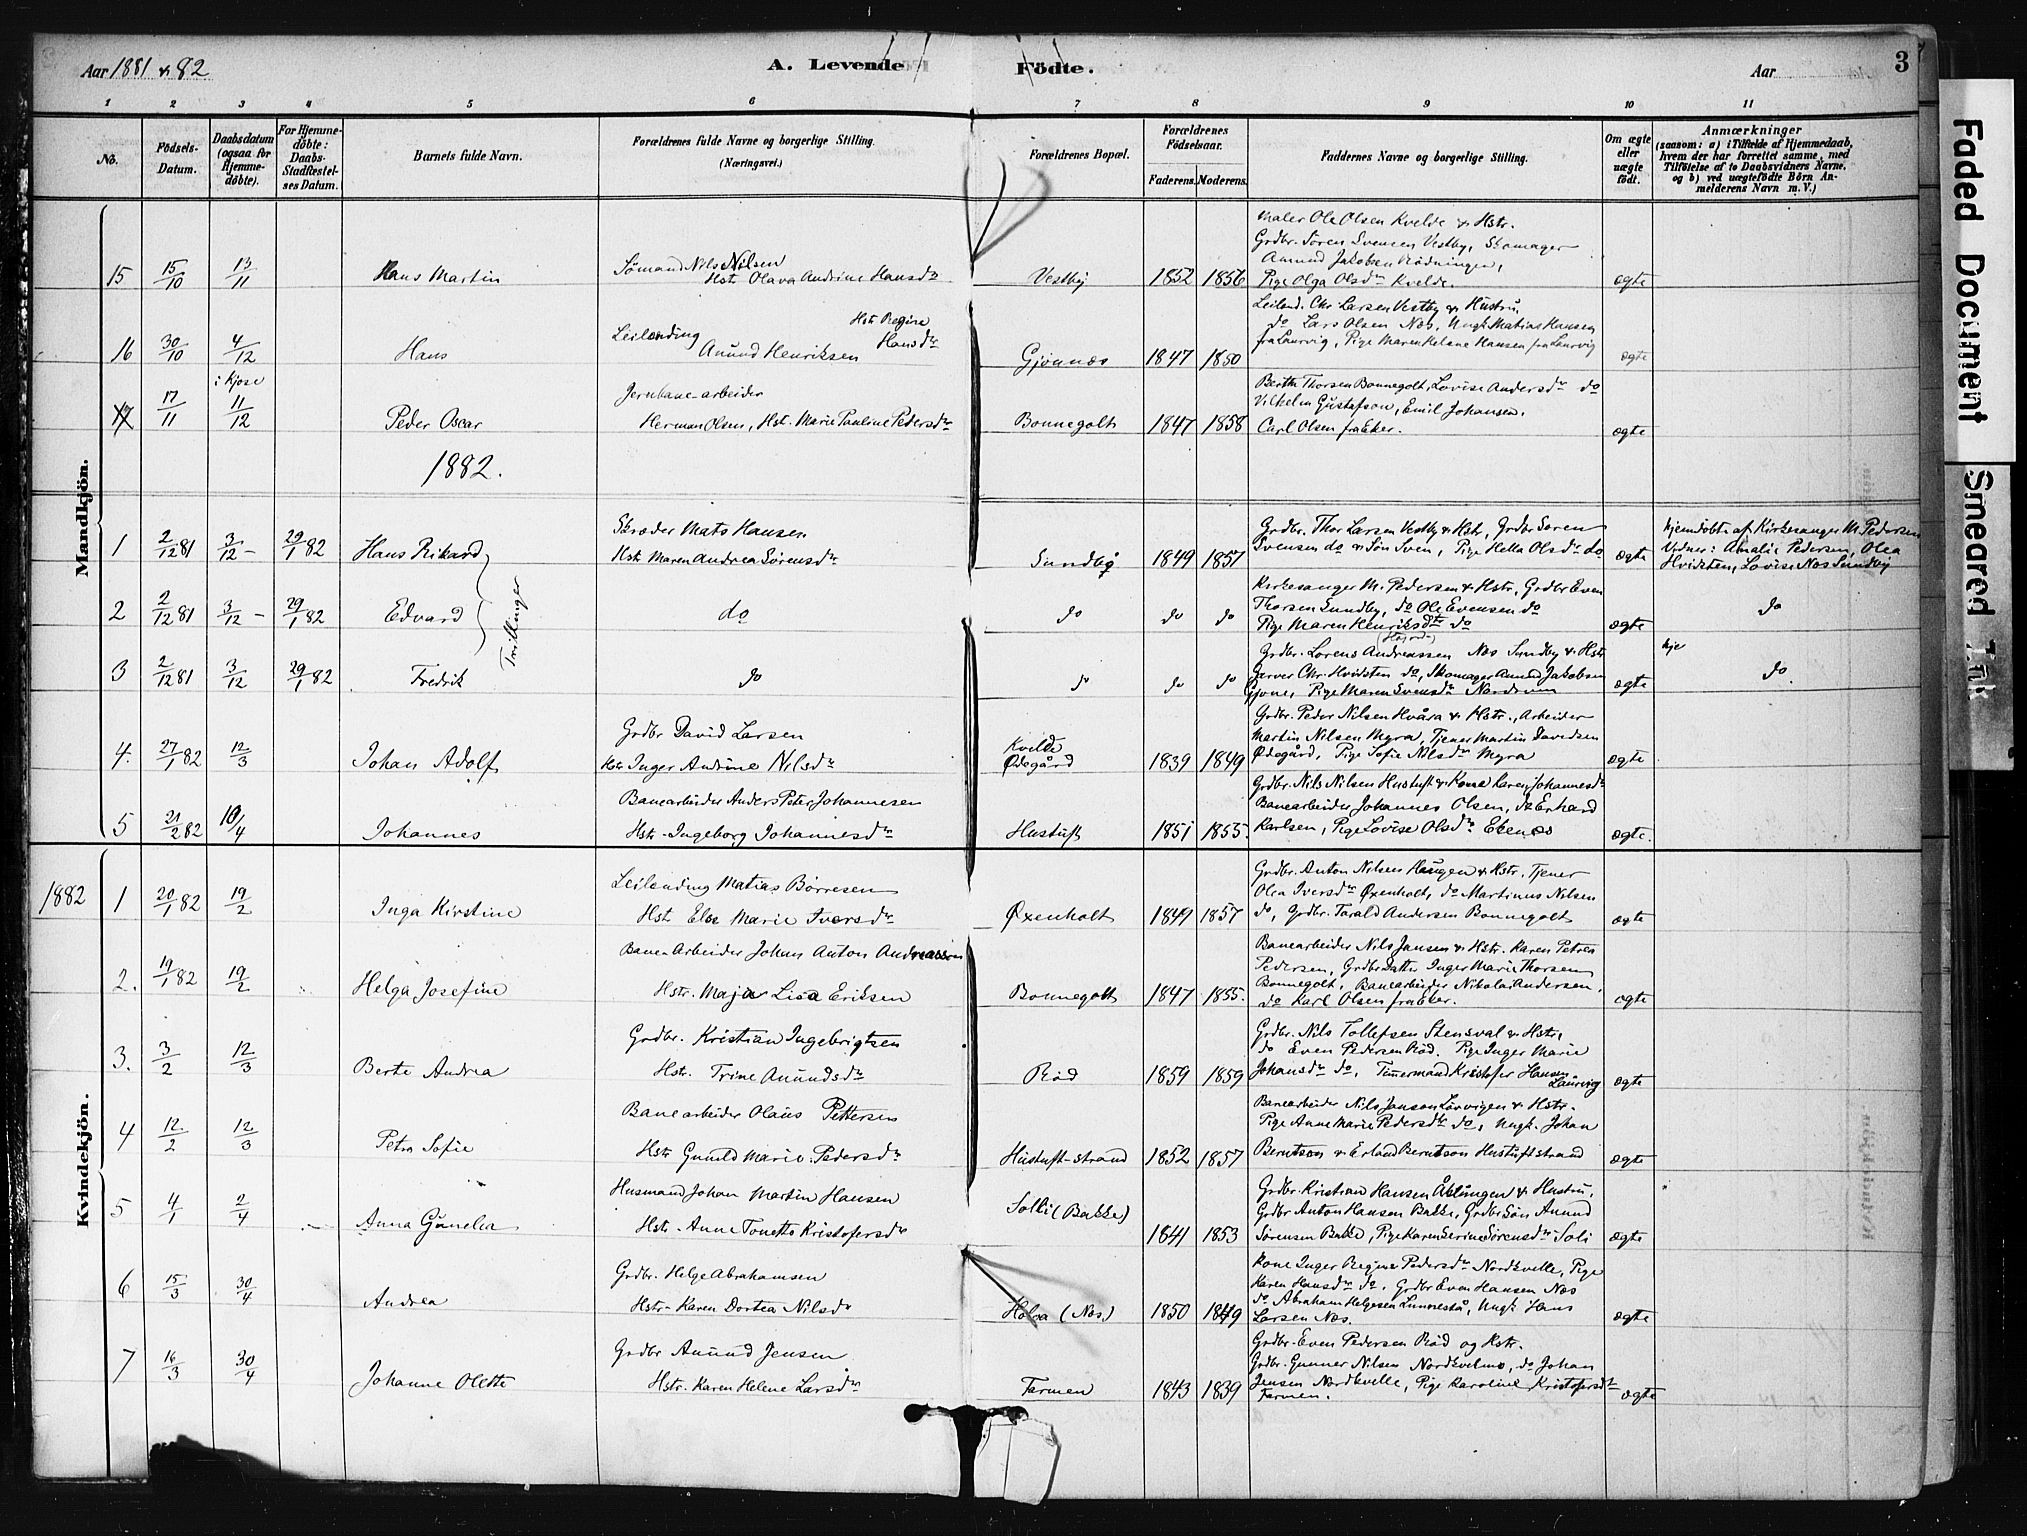 Aar 1881 & 82
A. Levende
Födte.
Aar
3
1 2 3 4 5 6 7 8 9 10 11
No.
Födsels-Datum.
Daabsdatum (ogsaa for Hjemme-döbte).
For Hjemme-döbte: Daabs-Stadfæstel-ses Datum.
Barnets fulde Navn.
Forældrenes fulde Navne og borgerlige Stilling.
(Næringsvei.)
Forældrenes Bopæl.
Forældrenes Födselsaar.
Faderens. Moderens.
Faddernes Navne og borgerlige Stilling.
Om ægte eller uægte födt.
Anmærkninger
(saasom: a) i Tilfælde af Hjemmedaab, hvem der har forrettet samme, med Tilföielse af to Daabsvidners Navne, og b) ved uægtefödte Börn An-melderens Navn m. V.)
Mandkjön.
15 15/10 13/11 Hans Martin
Sømand Nils Nilsen
Hstr. Olava Andrine Hansdtr
Vestby 1852 1856
Maler Ole Olsen Kvelde & Hstr.
Grdbr. Søren Svensen Vestby, Skomager
Anund Jakobsen Rødningen,
Pige Olga Olsdtr Kvelde.
ægte
16 30/10 4/12 Hans
Hstr Regine Hansdtr
Leilænding
Anund Henriksen
Gjønnæs 1847 1850
Leilænd. Chr Larsen Vestby & Hustru
do Lars Olsen Næs, Ungk. Matias Hansen
fra Laurvig, Pige Maren Helene Hansen fra Laurvig
ægte
17 17/11 i Kjose 11/12 Peder Oscar
Jernbane-arbeider
Herman Olsen, Hst. Marie Pauline Pedersdtr
Bonnegolt 1847 1858
Berthe Thorsen Bonnegolt, Lovise Andersdtr do
Vilhelm Gustafson, Emil Johansen,
Carl Olsen fra Eker.
ægte
1882.
1 2/12 81 3/12 - 29/1 82 Hans Rikard
Skræder Mats Hansen
Hstr Maren Andrea Sørensdtr
Sundby 1849 1857
Grdbr. Thor Larsen Vestby & Hstr, Grdbr Søren
Svensen do & Søn Sven, Pige Hella Olsdtr do
ægte
hjemdøbte af Kirkesanger M. Pedersen
Vidner: Amalie Pedersen, Olea
Hvidsten, Lovise Næs Sundby
Trillinger
2 2/12 81 3/12 - 29/1 82 Edvard
do do do do
Kirkesanger M. Pedersen & Hstr, Grdbr Even
Thorsen Sundby, do Ole Evensen do
Pige Maren Henriksdtr do
ægte do
3 2/12 81 3/12 29/1 82 Fredrik
do do do do
Grdbr. Lorens Andreassen Næs Sundby & Hstr
Garver Chr. Hvidsten do, Skomager Anund Jakobsen
Gjone, Pige Maren Svensdtr Nordrum
ægte
hje
do
4. 27/1 82 12/3 Johan Adolf
Grdbr David Larsen
Hstr Inger Andrine Nilsdtr
Kvelde
Ødegård 1839 1849
Grdbr. Peder Nilsen Hvåra & Hstr., Arbeider
Martin Nilsen Myra, Tjener Martin Davidsen
Ødegård, Pige Sofie Nilsdtr Myra
ægte
5 21/2 82 10/4 Johannes
Banearbeider Anders Peter Johannesen
Hstr. Ingeborg Johannesdtr
Hustuft 1851 1855.
Grdbr. Nils Nilsen Hustuft & Kone Karen Johannesdtr
Banearbeider Johannes Olsen, do Erhard
Karlsen, Pige Lovise Olsdtr Ekenæs
ægte.
Kvindekjön.
1882 1 20/1 82 19/2 Inga Kirstine
Leilending Matias Børresen
Hst. Else Marie Iversdtr
Øxenholt 1849 1857
Grdbr. Anton Nilsen Haugen & Hstr, Tjener
Olea Iversdtr Øxenholt, do Martinus Nilsen
do, Grdbr. Tarald Andersen Bonnegolt
ægte
2. 19/1 82 19/2 Helga Josefine
Bane-Arbeider Johan Anton Andreassen
Hstr. Maja Lisa Eriksen
Bonnegolt 1847 1855.
Banearbeider Nils Jansen & Hstr. Karen Petrea
Pedersen, Grdbr Datter Inger Marie Thorsen
Bonnegolt, Banearbeider Nikolai Andersen,
do Karl Olsen fra Eker.
ægte
3. 3/2 12/3 Berte Andrea
Grdbr. Kristian Ingebrigtsen
Hstr. Trine Anundsdtr
Rød 1859 1859
Grdbr. Nils Tollefsen Stensval & Hstr,
do Even Pedersen Rød. Pige Inger Marie
Johansdtr do, Timmermand Kristofer Hansen
Laurvig
ægte
4 12/2 12/3 Petra Sofie
Banearbeider Olaus Pettersen
Hstr Gunild Marie Pedersdtr
Hustuft-strand 1852 1857
Banearbeider Nils Janson Lørvigen & Hstr.
Pige Anne Marie Pedersdtr do, Ungk. Johan
Berntson & Erland Berntson Hustuftstrand
ægte
5 4/1 2/4 Anna Gunelia
Husmand Johan Martin Hansen
Hstr. Anne Tonette Kristofersdtr
Solli (Bakke) 1841 1853
Grdbr. Kristian Hansen Åklungen & Hustru,
Grdbr Anton Hansen Bakke, Grdbr Søn Anund
Sørensen Bakke, Pige Karen Serine Sørensdtr Soli
ægte
6 15/3 30/4 Andrea
Grdbr. Helge Abrahamsen
Hstr. Karen Dortea Nilsdtr
Holra (Næs) 1850 1849
Kone Inger Regine Pedersdtr Nordkvelle, Pige
Karen Hansdtr do, Grdbr Even Hansen Næs
do Abraham Helgesen Lunnestå, Ungk Hans
Larsen Næs.
ægte
7 16/3 30/4 Johanne Olette
Grdbr Anund Jensen
Hstr. Karen Helene Larsdtr
Farmen 1843 1839
Grdbr. Even Pedersen Rød og Hstr.
Grdbr. Gunner Nilsen Nordkvelmo, do Johan
Jensen Nordkvelle, Pige Karoline Kristofersdtr
Farmen.
ægte
Faded Document
Smeared Ink